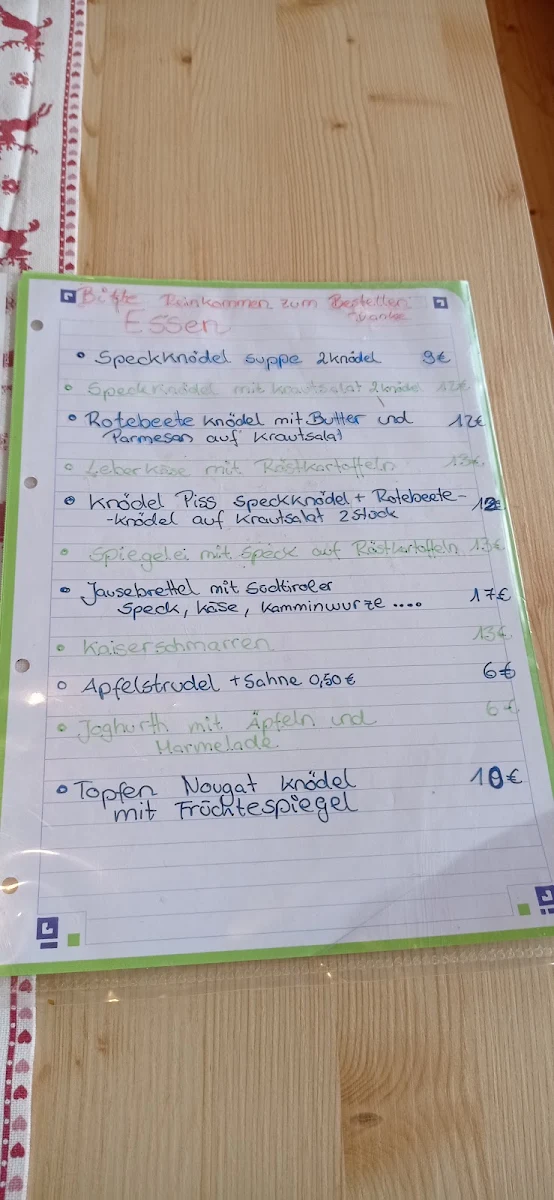 Bitte Reinkommen zum Bestellen
Danke
Essen
• Speckknödel suppe 2knödel 9€
• Speckknödel mit krautsalat 2knödel 12€
• Rotebeete knödel mit Butter und 12€
Parmesan auf Krautsalat
• Leberkäse mit Röstkartoffeln 13€
• Knödel Piss Speckknödel + Rotebeete-
-knödel auf Krautsalat 2Stock
• Spiegelei mit Speck auf Röstkartoffeln 13€
• Jausebrettel mit Südtiroler 17€
Speck, käse, kamminwurze ....
• Kaiserschmarren 13€
• Apfelstrudel + Sahne 0,50€ 6€
• Joghurth mit Äpfeln und 6€
Marmelade
• Topfen Nougat knödel 10€
mit Früchtespiegel